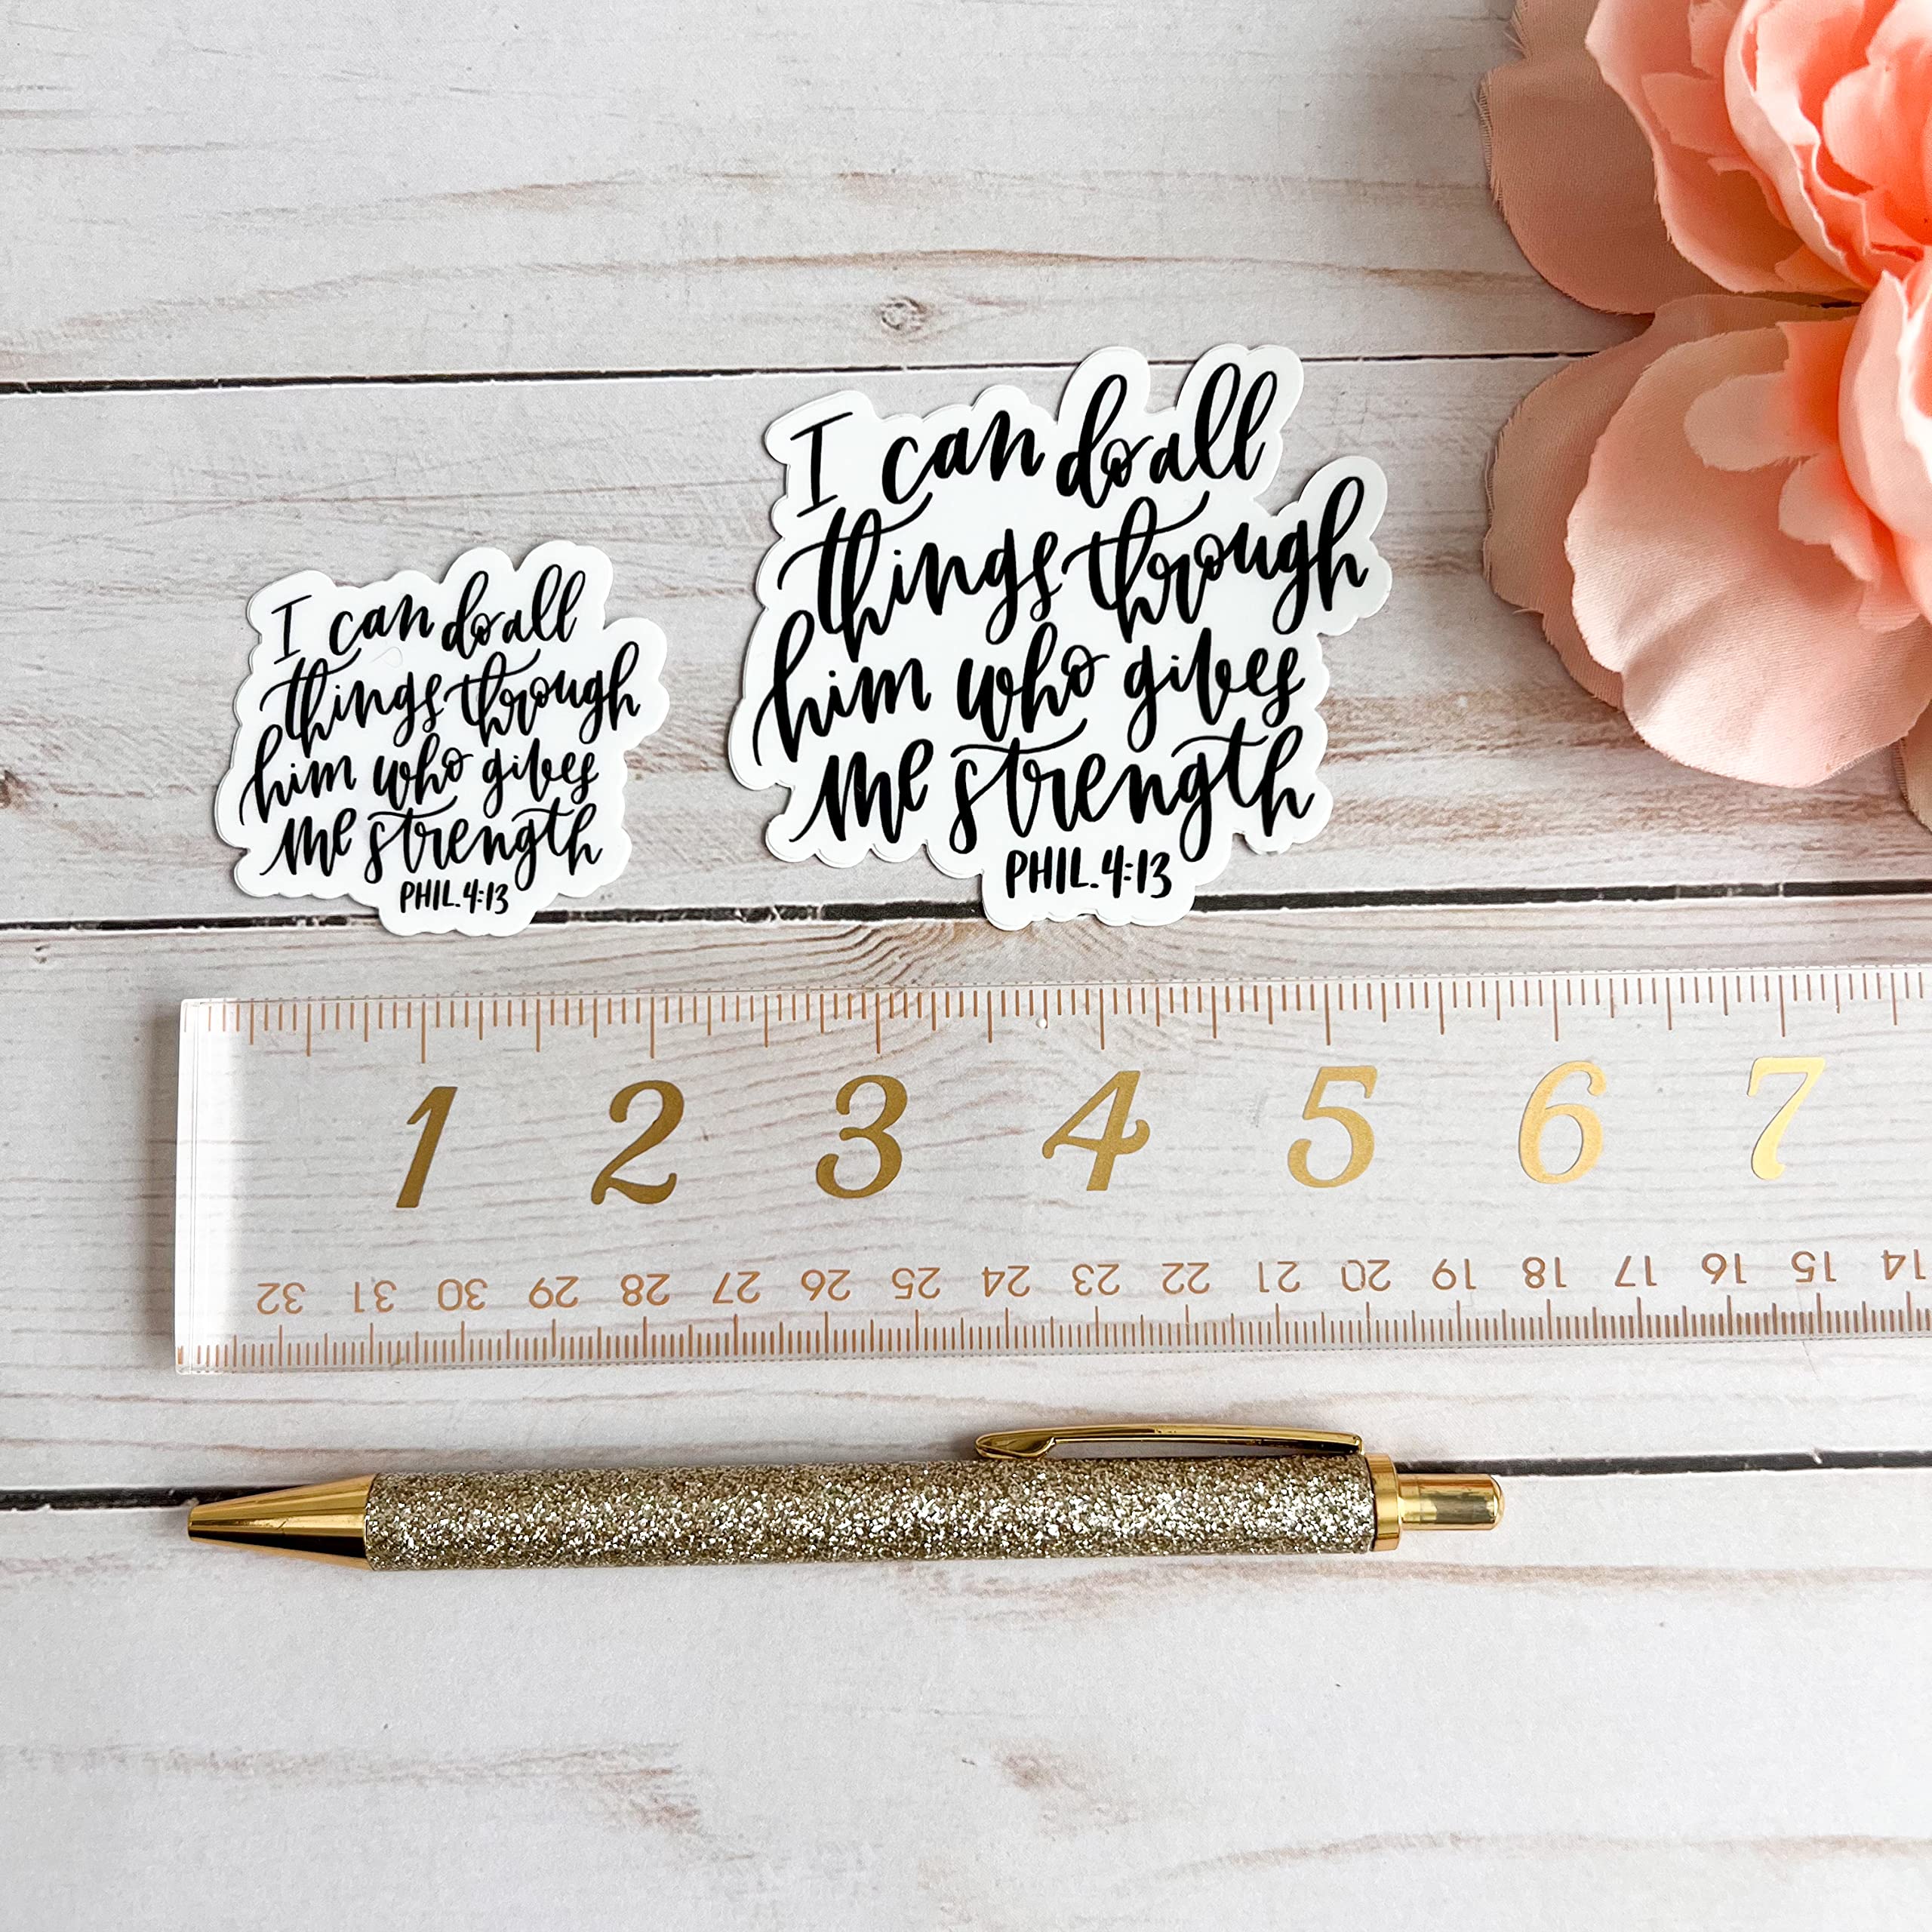 I can do all
things through
him who gives
me strength
PHIL. 4:13
I can do all
things through
him who gives
me strength
PHIL. 4:13
1 2 3 4 5 6 7
32 31 30 29 28 27 26 25 24 23 22 21 20 19 18 17 16 15 14